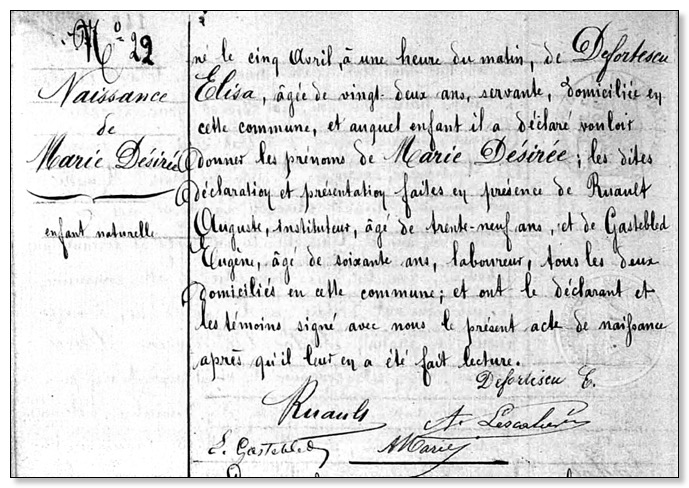 No 22
Naissance
de
Marie Désirée
enfant naturelle
né le cinq Avril, à une heure du matin, de Defortescu
Elisa, âgée de vingt-deux ans, servante, domiciliée en
cette commune, et auquel enfant il a déclaré vouloir
donner les prénoms de Marie Désirée; les dites
déclaration et présentation faites en présence de Ruault
Auguste, instituteur, âgé de trente-neuf ans, et de Gastebled
Eugène, âgé de soixante ans, laboureur, tous les deux
domiciliés en cette commune; et ont le déclarant et
les témoins signé avec nous le présent acte de naissance
après qu'il leur en a été fait lecture.
Defortescu E.
Ruault
E. Gastebled